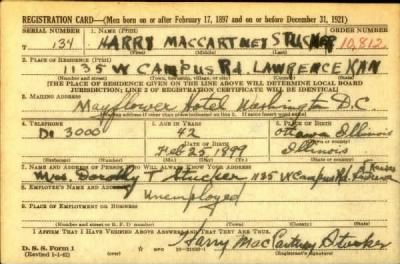 REGISTRATION CARD—(Men born on or after February 17, 1897 and on or before December 31, 1921)
SERIAL NUMBER 1. NAME (Print) ORDER NUMBER
134 HARRY MACCARTNEY STUCKER 10,812
(First) (Middle) (Last)
2. PLACE OF RESIDENCE (Print)
1135 W CAMPUS Rd LAWRENCE KAN
(Number and street) (Town, township, village, or city) (County) (State)
[THE PLACE OF RESIDENCE GIVEN ON THE LINE ABOVE WILL DETERMINE LOCAL BOARD
JURISDICTION; LINE 2 OF REGISTRATION CERTIFICATE WILL BE IDENTICAL]
3. MAILING ADDRESS
Mayflower Hotel Washington D.C
[Mailing address if other than place indicated on line 2. If same insert word same]
4. TELEPHONE 5. AGE IN YEARS 6. PLACE OF BIRTH
Di 3000 42 Ottawa Illinois
DATE OF BIRTH
Feb 25 1899 Illinois
(Exchange) (Number) (Mo.) (Day) (Yr.) (State or country)
7. NAME AND ADDRESS OF PERSON WHO WILL ALWAYS KNOW YOUR ADDRESS
Mrs. Dorothy T Stucker 1135 W Campus Rd Kansas
8. EMPLOYER'S NAME AND ADDRESS
Unemployed
9. PLACE OF EMPLOYMENT OR BUSINESS
(Number and street or R. F. D. number) (Town) (County) (State)
I AFFIRM THAT I HAVE VERIFIED ABOVE ANSWERS AND THAT THEY ARE TRUE.
D. S. S. Form 1
(Revised 1-1-42) GPO Harry MacCartney Stucker